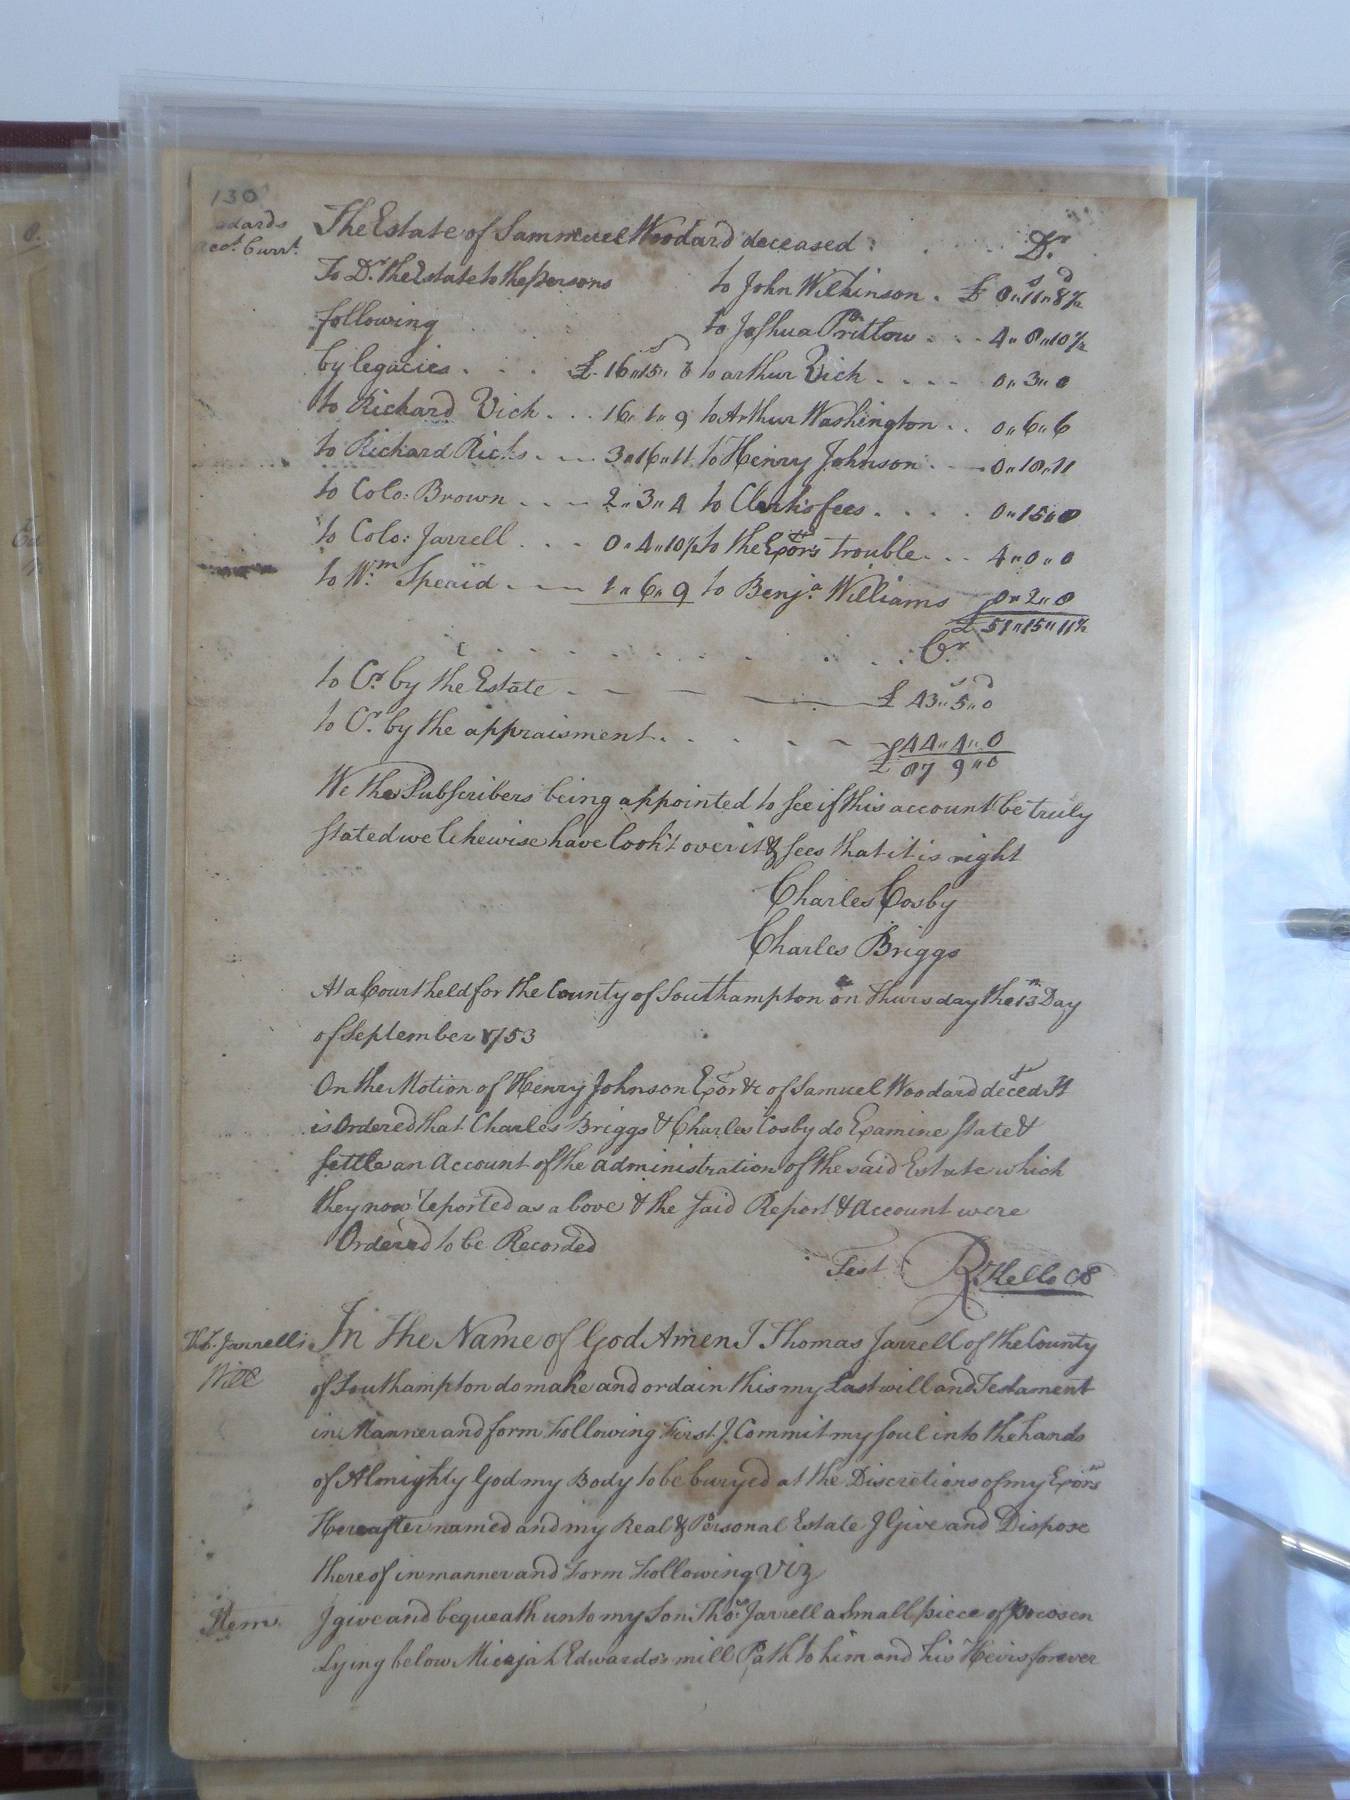 130
The Estate of Sammuel Woodard deceased Dr
Acct. Currt.
To Dr. the Estate to the persons to John Wilkinson . £ 0"11"8½
following to Joshua Pritlow . . . 4"8"10½
by legacies . . . £ 16"15"8 to arthur Vick . . . . 0"3"0
to Richard Vick . . . 16"1"9 to Arthur Washington . . 0"6"6
to Richard Ricks . . . 3"16"11 to Henry Johnson . . . 0"10"11
to Colo: Brown . . . 2"3"4 to Clerks fees . . . . 0"15"0
to Colo: Jarrell . . . 0"4"10½ to the Exors trouble . . . 4"0"0
to Wm. 1"6"9 to Benja Williams 0"2"0
£ 51"15"11½
Cr
to Cr. by the Estate £ 43"5"0
to Cr. by the appraisment . . . . . £44"4"0
£ 87 9"0
We the Subscribers being appointed to see if this account be truly
stated we likewise have look't over it & sees that it is right
Charles Cosby
Charles Briggs
At a Court held for the County of Southampton on Thursday the 13th Day
of September 1753
On the Motion of Henry Johnson Exor &c of Samuel Woodard deced It
is Ordered that Charles Briggs & Charles Cosby do Examine state &
settle an Account of the administration of the said Estate which
they now reported as above & the said Report & Account were
Ordered to be Recorded
Test R Kello CC
Jarrells In the Name of God Amen I Thomas Jarrell of the County
Will of Southampton do make and ordain this my Last will and Testament
in Manner and form Following First I Commit my soul into the hands
of Almighty God my Body to be buryed at the Discretions of my Exors
Hereafter named and my Real & Personal Estate I Give and Dispose
thereof in manner and Form Following Viz
Item I give and bequeath unto my Son Thos. Jarrell a Small piece of pocosen
Lying below Micajah Edwards's mill Path to him and his Heirs forever